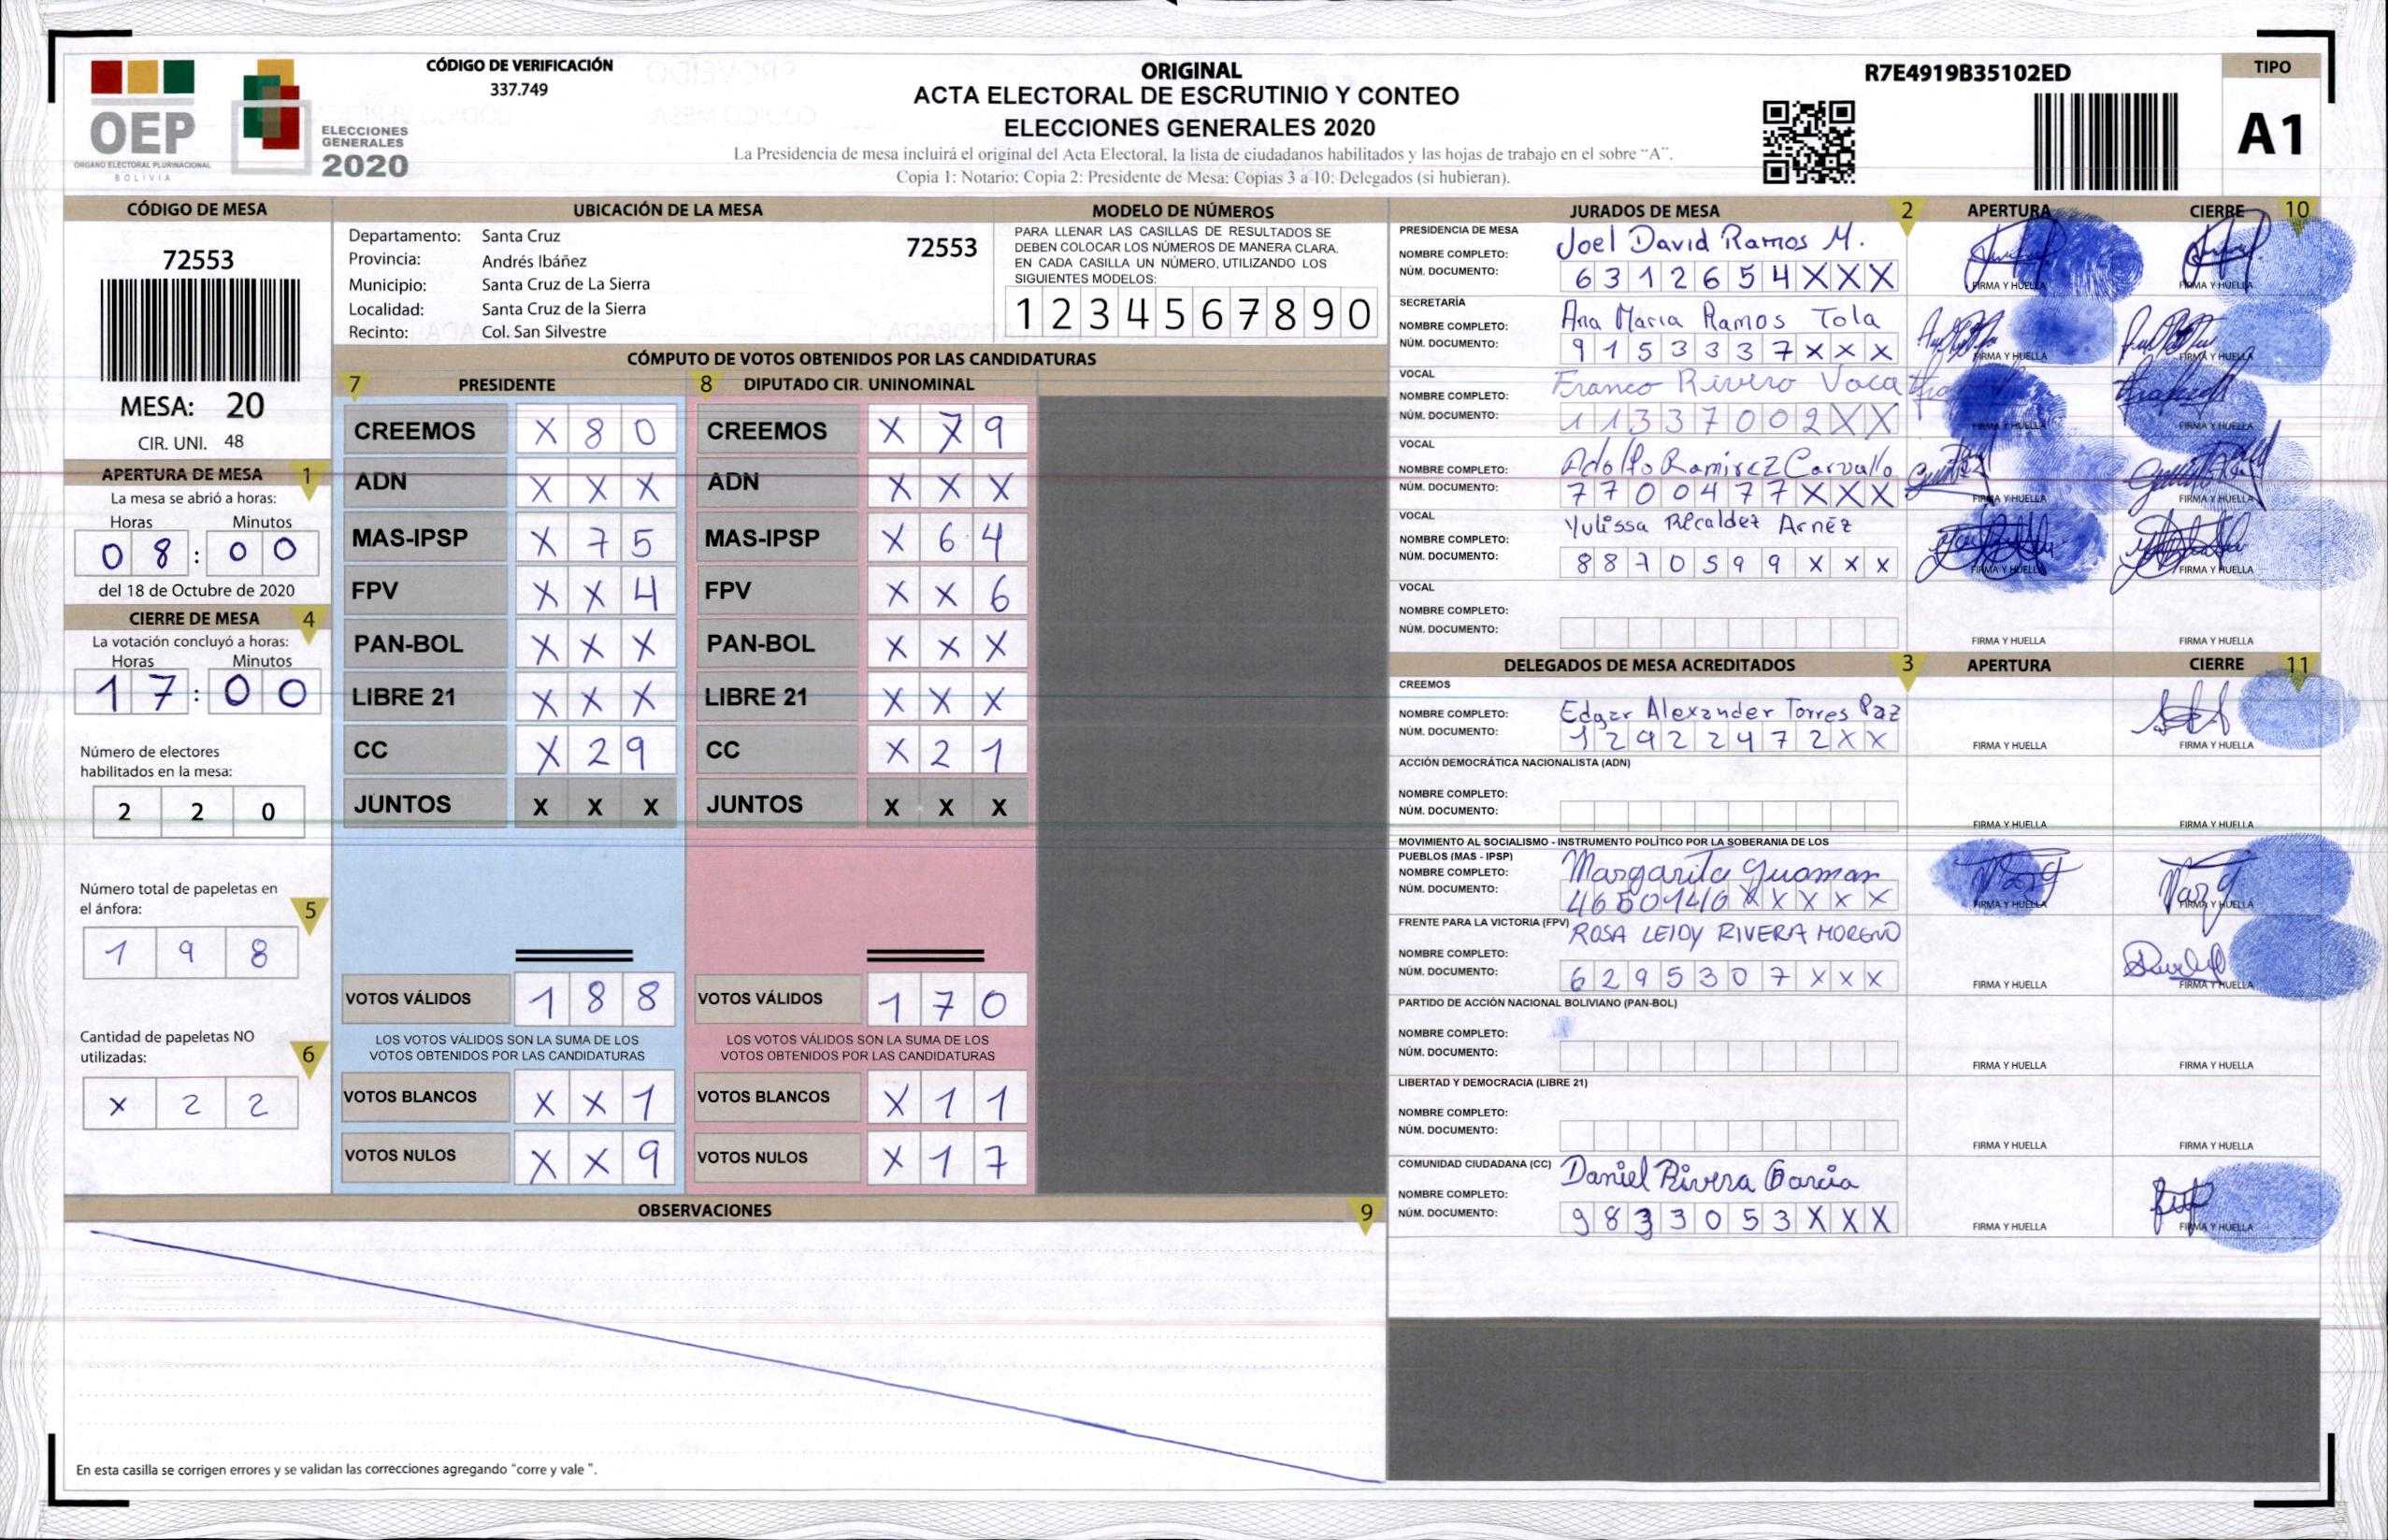 OEP
ORGANO ELECTORAL PLURINACIONAL
BOLIVIA
ELECCIONES
GENERALES
2020
CÓDIGO DE VERIFICACIÓN
337.749
ORIGINAL
ACTA ELECTORAL DE ESCRUTINIO Y CONTEO
ELECCIONES GENERALES 2020
La Presidencia de mesa incluirá el original del Acta Electoral, la lista de ciudadanos habilitados y las hojas de trabajo en el sobre "A".
Copia 1: Notario: Copia 2: Presidente de Mesa: Copias 3 a 10: Delegados (si hubieran).
R7E4919B35102ED
TIPO
A1
CÓDIGO DE MESA
72553
MESA: 20
CIR. UNI. 48
APERTURA DE MESA 1
La mesa se abrió a horas:
Horas Minutos
0 8 : 0 0
del 18 de Octubre de 2020
CIERRE DE MESA 4
La votación concluyó a horas:
Horas Minutos
1 7 : 0 0
Número de electores
habilitados en la mesa:
2 2 0
Número total de papeletas en
el ánfora: 5
1 9 8
Cantidad de papeletas NO
utilizadas: 6
X 2 2
UBICACIÓN DE LA MESA
Departamento: Santa Cruz
72553
Provincia: Andrés Ibáñez
Municipio: Santa Cruz de La Sierra
Localidad: Santa Cruz de la Sierra
Recinto: Col. San Silvestre
MODELO DE NÚMEROS
PARA LLENAR LAS CASILLAS DE RESULTADOS SE
DEBEN COLOCAR LOS NÚMEROS DE MANERA CLARA.
EN CADA CASILLA UN NÚMERO, UTILIZANDO LOS
SIGUIENTES MODELOS:
1 2 3 4 5 6 7 8 9 0
CÓMPUTO DE VOTOS OBTENIDOS POR LAS CANDIDATURAS
7 PRESIDENTE 8 DIPUTADO CIR. UNINOMINAL
CREEMOS X 8 0 CREEMOS X 7 9
ADN X X X ADN X X X
MAS-IPSP X 7 5 MAS-IPSP X 6 4
FPV X X 4 FPV X X 6
PAN-BOL X X X PAN-BOL X X X
LIBRE 21 X X X LIBRE 21 X X X
CC X 2 9 CC X 2 1
JUNTOS X X X JUNTOS X X X
VOTOS VÁLIDOS 1 8 8 VOTOS VÁLIDOS 1 7 0
LOS VOTOS VÁLIDOS SON LA SUMA DE LOS LOS VOTOS VÁLIDOS SON LA SUMA DE LOS
VOTOS OBTENIDOS POR LAS CANDIDATURAS VOTOS OBTENIDOS POR LAS CANDIDATURAS
VOTOS BLANCOS X X 1 VOTOS BLANCOS X 1 1
VOTOS NULOS X X 9 VOTOS NULOS X 1 7
OBSERVACIONES 9
En esta casilla se corrigen errores y se validan las correcciones agregando "corre y vale ".
JURADOS DE MESA 2 APERTURA CIERRE 10
PRESIDENCIA DE MESA
NOMBRE COMPLETO: Joel David Ramos M.
NÚM. DOCUMENTO: 6 3 1 2 6 5 4 X X X
FIRMA Y HUELLA FIRMA Y HUELLA
SECRETARÍA
NOMBRE COMPLETO: Ana Maria Ramos Tola
NÚM. DOCUMENTO: 9 1 5 3 3 3 7 X X X
FIRMA Y HUELLA FIRMA Y HUELLA
VOCAL
NOMBRE COMPLETO: Franco Rivero Vaca
NÚM. DOCUMENTO: 1 1 3 3 7 0 0 2 X X
FIRMA Y HUELLA FIRMA Y HUELLA
VOCAL
NOMBRE COMPLETO: Adolfo Ramirez Carvallo
NÚM. DOCUMENTO: 7 7 0 0 4 7 7 X X X
FIRMA Y HUELLA FIRMA Y HUELLA
VOCAL
NOMBRE COMPLETO: Yulissa Alcaldez Arnéz
NÚM. DOCUMENTO: 8 8 7 0 5 9 9 X X X
FIRMA Y HUELLA FIRMA Y HUELLA
VOCAL
NOMBRE COMPLETO:
NÚM. DOCUMENTO:
FIRMA Y HUELLA FIRMA Y HUELLA
DELEGADOS DE MESA ACREDITADOS 3 APERTURA CIERRE 11
CREEMOS
NOMBRE COMPLETO: Edgar Alexander Torres Paz
NÚM. DOCUMENTO: 1 2 9 2 2 4 7 2 X X
FIRMA Y HUELLA FIRMA Y HUELLA
ACCIÓN DEMOCRÁTICA NACIONALISTA (ADN)
NOMBRE COMPLETO:
NÚM. DOCUMENTO:
FIRMA Y HUELLA FIRMA Y HUELLA
MOVIMIENTO AL SOCIALISMO - INSTRUMENTO POLÍTICO POR LA SOBERANIA DE LOS
PUEBLOS (MAS - IPSP)
NOMBRE COMPLETO: Margarita Guaman
NÚM. DOCUMENTO:
FIRMA Y HUELLA FIRMA Y HUELLA
FRENTE PARA LA VICTORIA (FPV)
NOMBRE COMPLETO: ROSA LEIDY RIVERA MORENO
NÚM. DOCUMENTO: 6 2 9 5 3 0 7 X X X
FIRMA Y HUELLA FIRMA Y HUELLA
PARTIDO DE ACCIÓN NACIONAL BOLIVIANO (PAN-BOL)
NOMBRE COMPLETO:
NÚM. DOCUMENTO:
FIRMA Y HUELLA FIRMA Y HUELLA
LIBERTAD Y DEMOCRACIA (LIBRE 21)
NOMBRE COMPLETO:
NÚM. DOCUMENTO:
FIRMA Y HUELLA FIRMA Y HUELLA
COMUNIDAD CIUDADANA (CC)
NOMBRE COMPLETO: Daniel Rivera Garcia
NÚM. DOCUMENTO: 9 8 3 3 0 5 3 X X X
FIRMA Y HUELLA FIRMA Y HUELLA